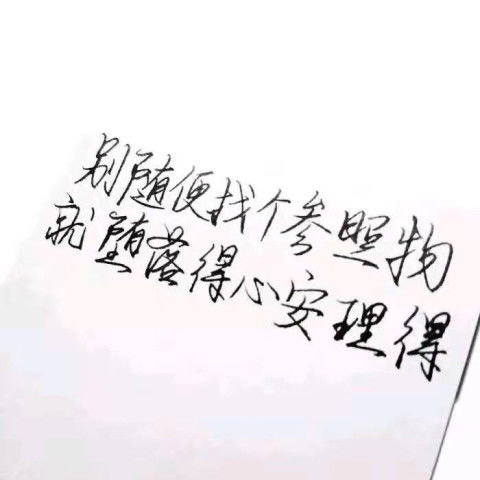 别随便找个参照物
就堕落得心安理得